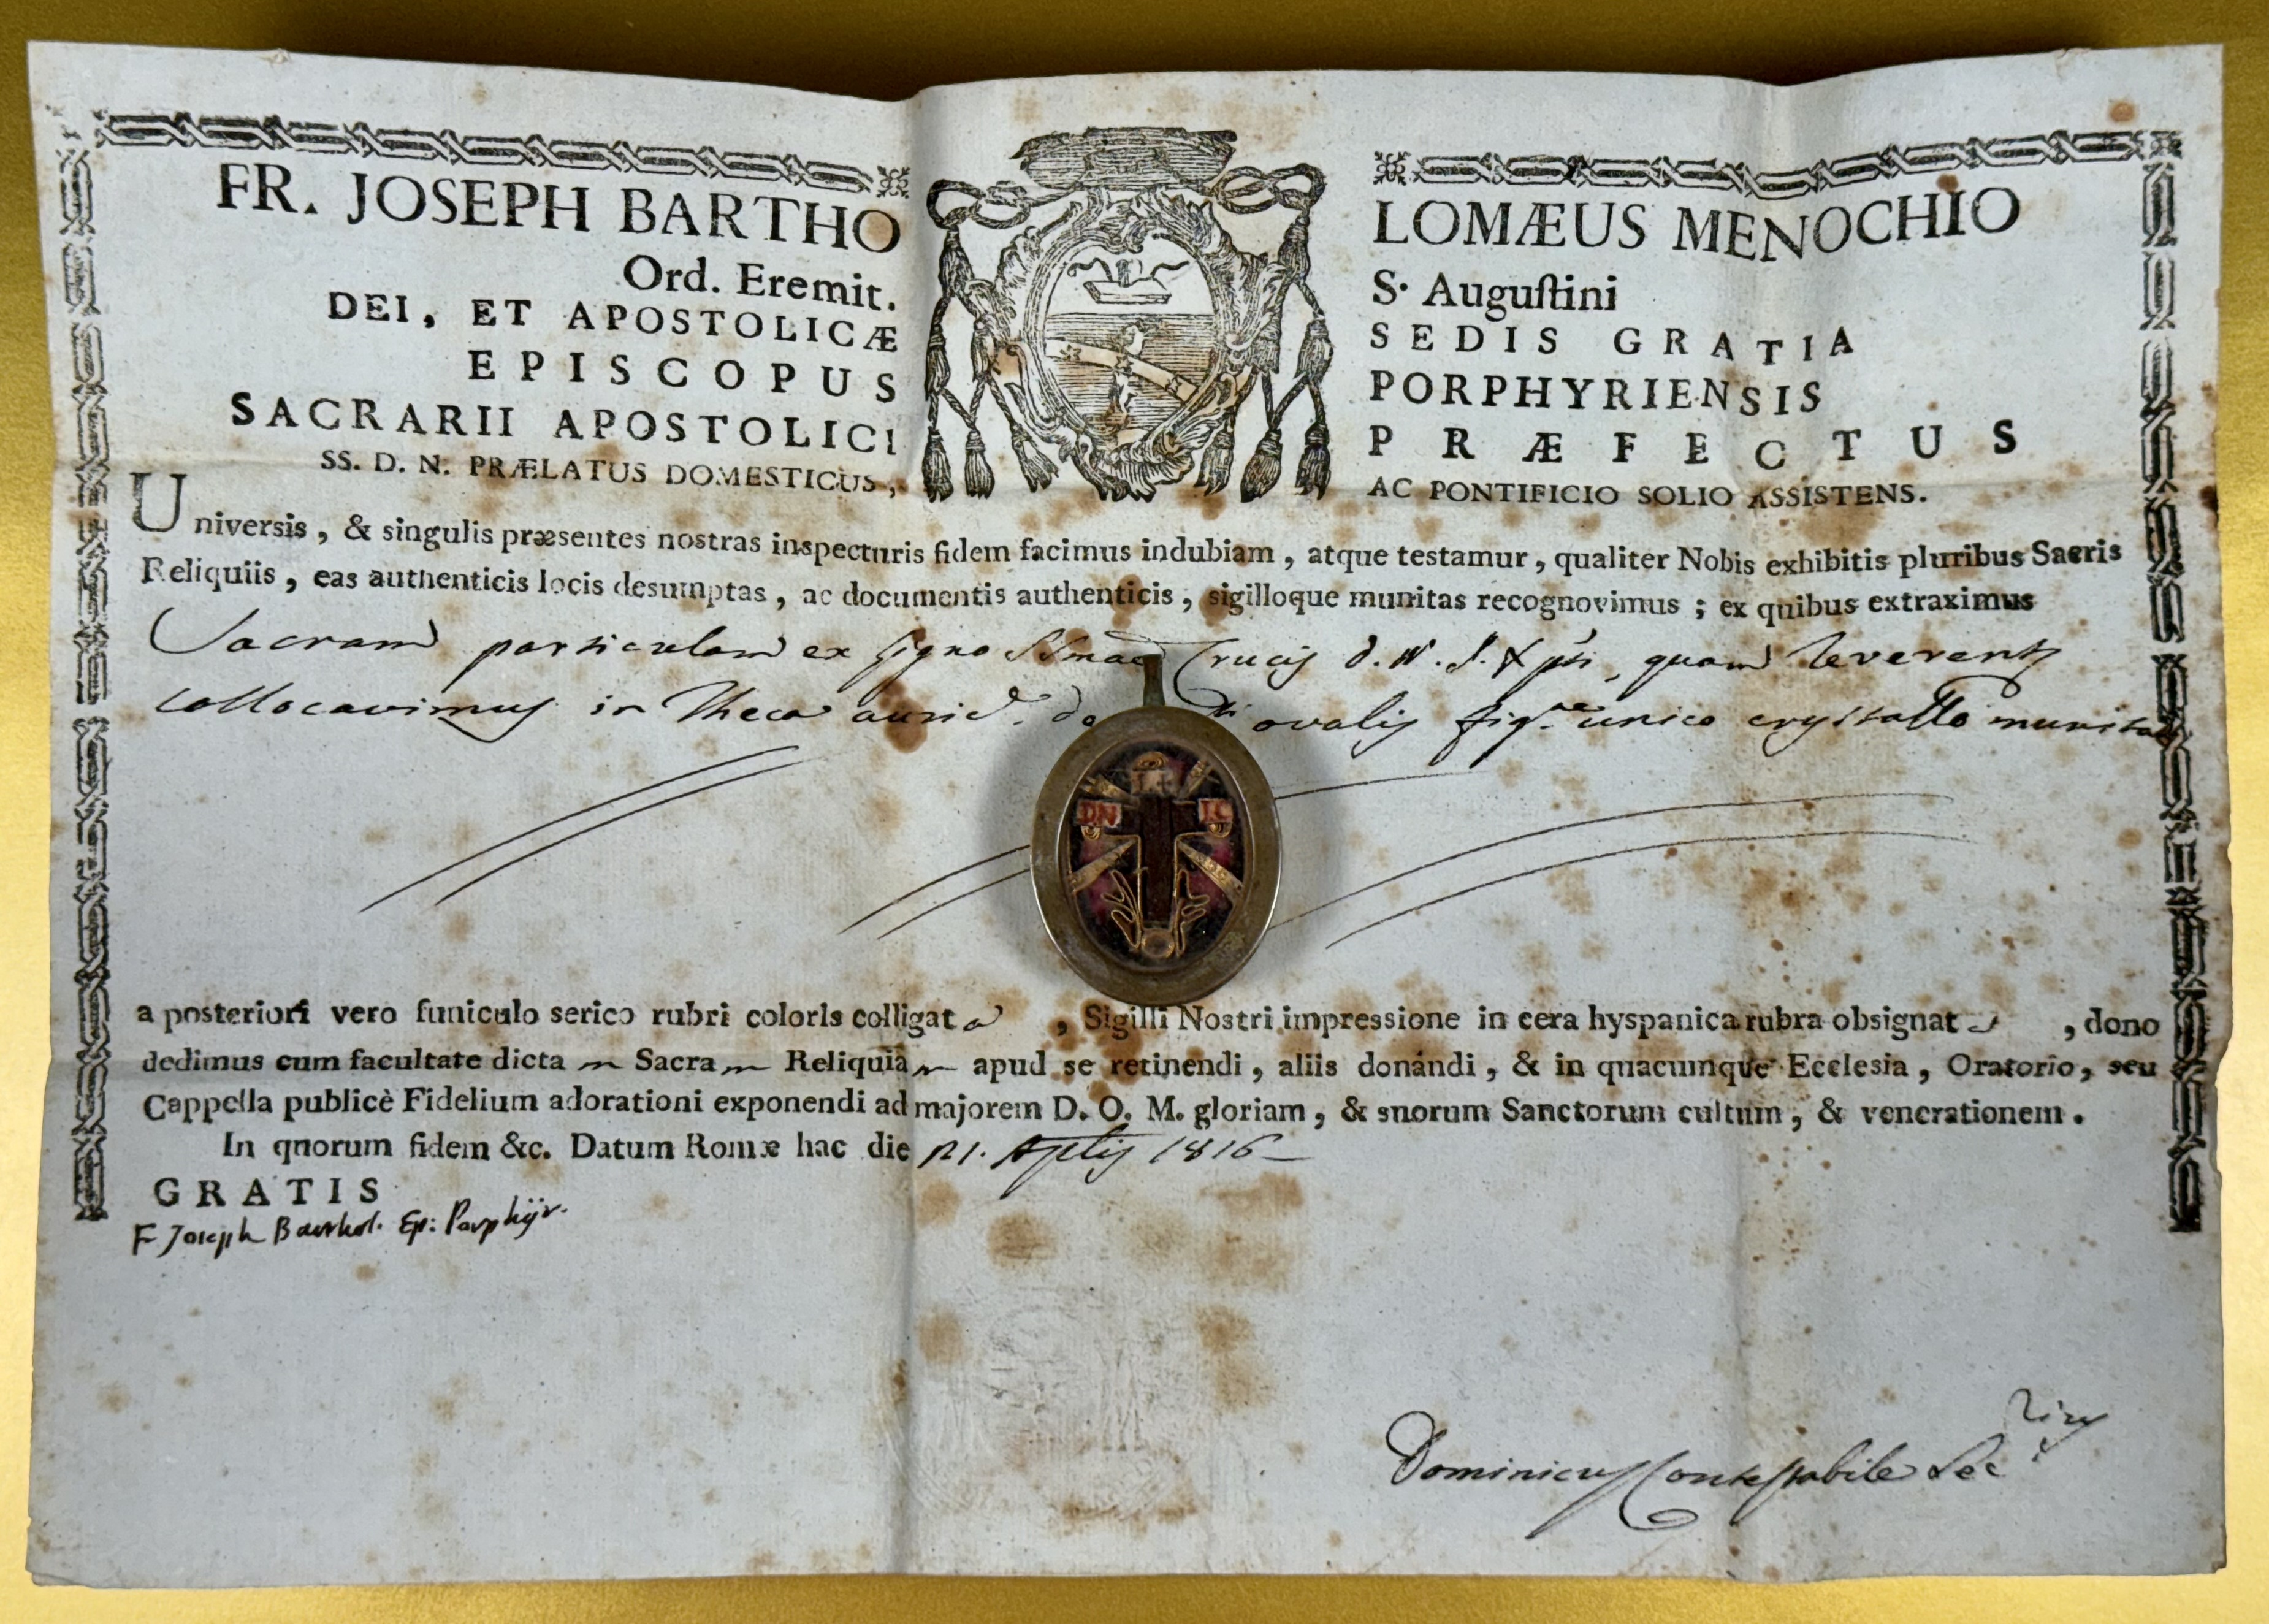 FR. JOSEPH BARTHOLOMÆUS MENOCHIO
Ord. Eremit. S. Auguſtini
DEI, ET APOSTOLICÆ SEDIS GRATIA
EPISCOPUS PORPHYRIENSIS
SACRARII APOSTOLICI PRÆFECTUS
SS. D. N. PRÆLATUS DOMESTICUS, AC PONTIFICIO SOLIO ASSISTENS.
Universis, & singulis præsentes nostras inspecturis fidem facimus indubiam, atque testamur, qualiter Nobis exhibitis pluribus Sacris
Reliquiis, eas authenticis locis desumptas, ac documentis authenticis, sigilloque munitas recognovimus; ex quibus extraximus
Sacram particulam ex ligno SSmae Crucis D. N. J. Xpti, quam reverent
collocavimus in Theca ovalis fig.ae unico crystallo munita
DN IC
a posteriori vero funiculo serico rubri coloris colligata, Sigilli Nostri impressione in cera hyspanica rubra obsignata, dono
dedimus cum facultate dictam Sacram Reliquiam apud se retinendi, aliis donandi, & in quacumque Ecclesia, Oratorio, seu
Cappella publicè Fidelium adorationi exponendi ad majorem D. O. M. gloriam, & suorum Sanctorum cultum, & venerationem.
In quorum fidem &c. Datum Romæ hac die 21. Aplis 1816
GRATIS
F Joseph Barthol. Ep: Porphyr.
Dominicus Contestabile Sec.rius